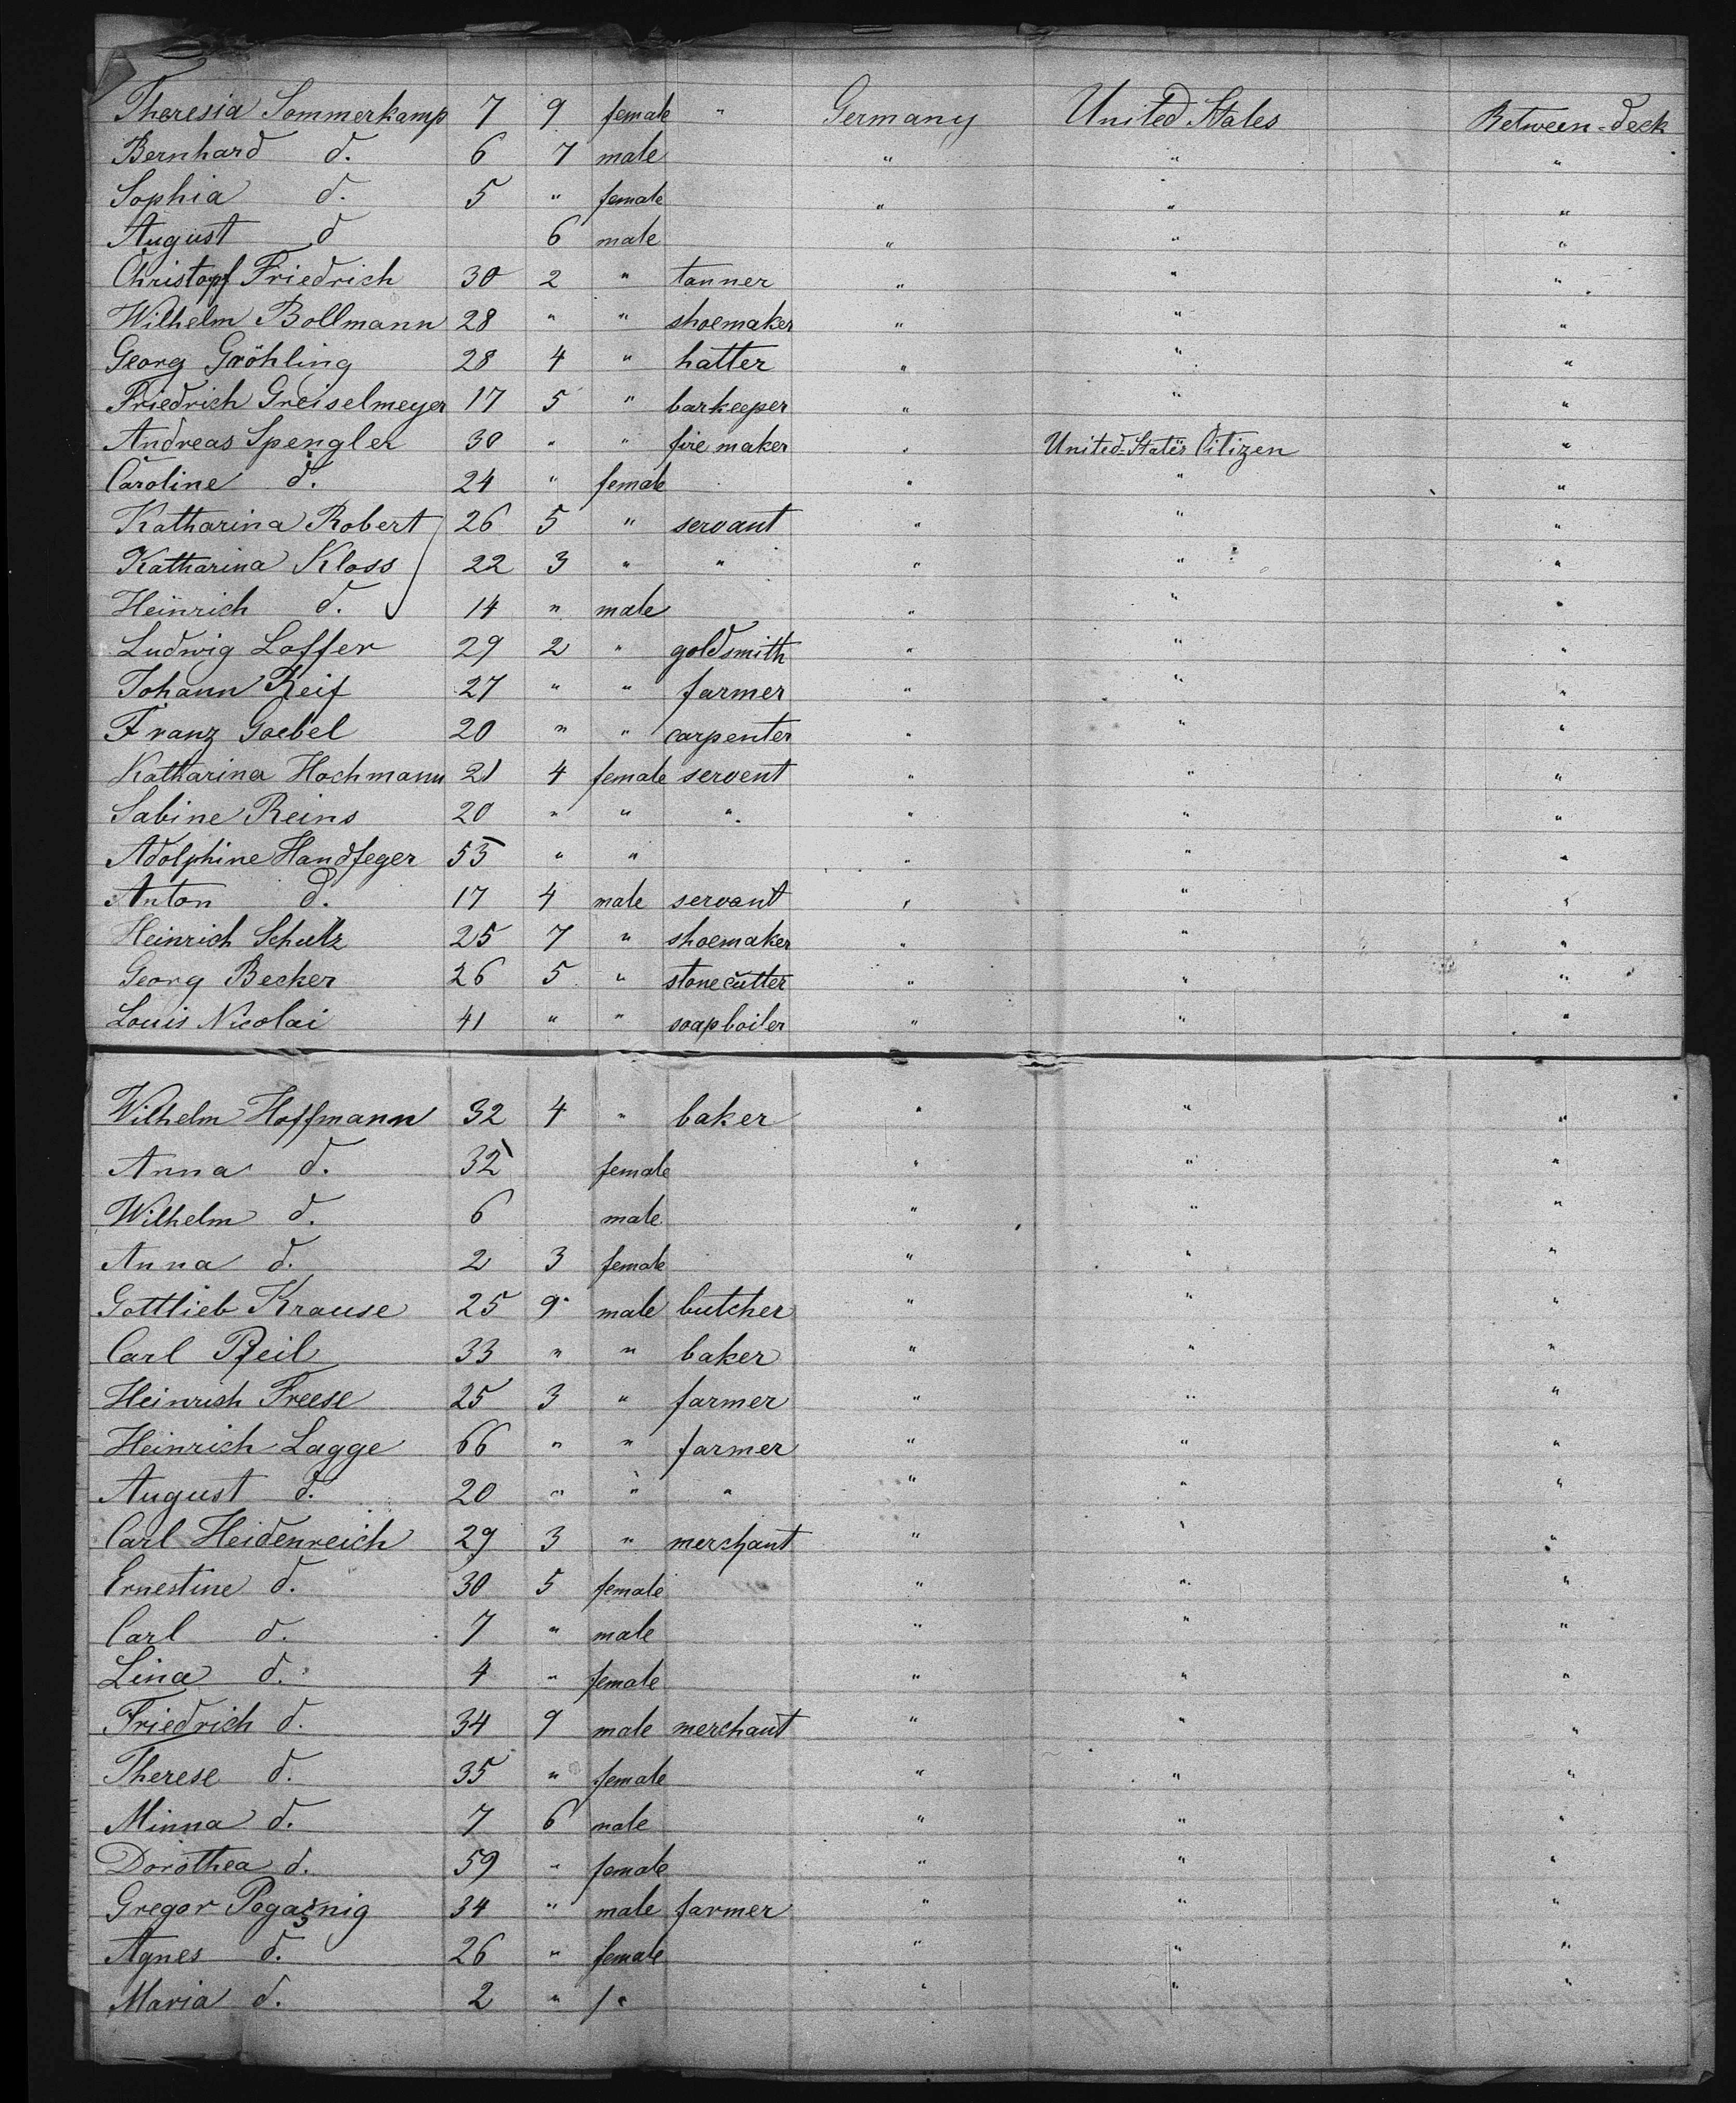 Theresia Sommerkamp 7 9 female " Germany United States Between-deck
Bernhard d. 6 7 male " " "
Sophia d. 5 " female " " "
August d 6 male " " "
Christopf Friedrich 30 2 " tanner " " "
Wilhelm Bollmann 28 " " shoemaker " " "
Georg Gröhling 28 4 " hatter " " "
Friedrich Greiselmeyer 17 5 " barkeeper " " "
Andreas Spengler 30 " " fire maker " United-States Citizen "
Caroline d. 24 " female " " "
Katharina Robert 26 5 " servant " " "
Katharina Kloss 22 3 " " " " "
Heinrich d. 14 " male " " "
Ludwig Loffer 29 2 " goldsmith " " "
Johann Reif 27 " " farmer " " "
Franz Goebel 20 " " carpenter " " "
Katharina Hochmann 21 4 female servent " " "
Sabine Reins 20 " " " " " "
Adolphine Handfeger 53 " " " " "
Anton d. 17 4 male servant " " "
Heinrich Schultz 25 7 " shoemaker " " "
Georg Becker 26 5 " stonecutter " " "
Louis Nicolai 41 " " soapboiler " " "
Wilhelm Hoffmann 32 4 " baker " " "
Anna d. 32 female " " "
Wilhelm d. 6 male " " "
Anna d. 2 3 female " " "
Gottlieb Krause 25 9 male butcher " " "
Carl Pfeil 33 " " baker " " "
Heinrich Freese 25 3 " farmer " " "
Heinrich Lagge 66 " " farmer " " "
August d. 20 " " " " " "
Carl Heidenreich 29 3 " merchant " " "
Ernestine d. 30 5 female " " "
Carl d. 7 " male " " "
Lina d. 4 " female " " "
Friedrich d. 34 9 male merchant " " "
Therese d. 35 " female " " "
Minna d. 7 6 male " " "
Dorothea d. 59 " female " " "
Gregor Pogaznig 34 " male farmer " " "
Agnes d. 26 " female " " "
Maria d. 2 " " " "